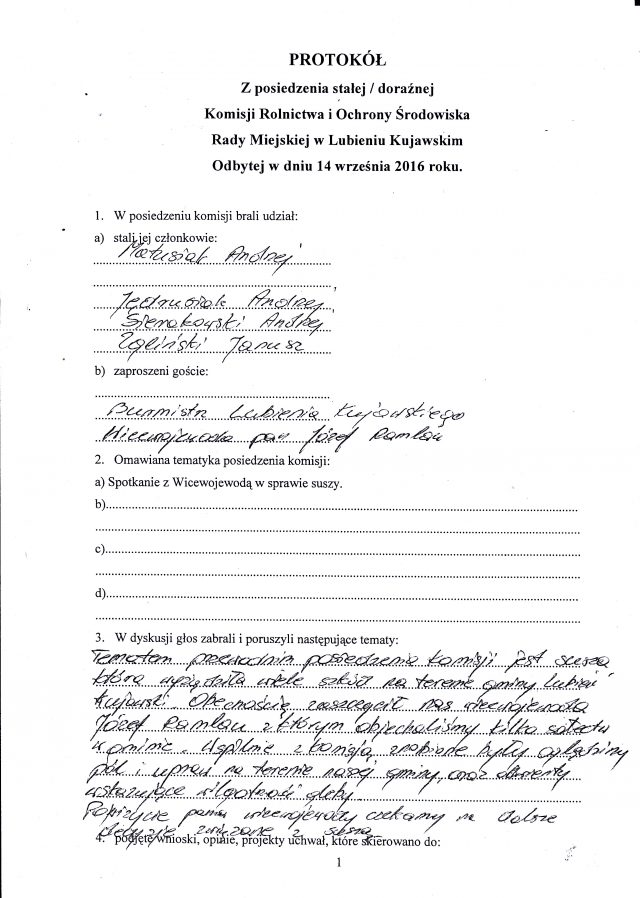 PROTOKÓŁ
Z posiedzenia stałej / doraźnej
Komisji Rolnictwa i Ochrony Środowiska
Rady Miejskiej w Lubieniu Kujawskim
Odbytej w dniu 14 września 2016 roku.
1. W posiedzeniu komisji brali udział:
a) stali jej członkowie:
Matusiak Andrzej
Jędrusiak Andrzej
Sierakowski Andrzej
Żgliński Janusz
b) zaproszeni goście:
Burmistrz Lubienia Kujawskiego
Wicewojewoda pan Józef Ramlau
2. Omawiana tematyka posiedzenia komisji:
a) Spotkanie z Wicewojewodą w sprawie suszy.
b)
c)
d)
3. W dyskusji głos zabrali i poruszyli następujące tematy:
Tematem przewodnim posiedzenia komisji jest susza
która wyrządziła wiele szkód na terenie gminy Lubień
Kujawski. Obecnością zaszczycił nas wicewojewoda
Józef Ramlau z którym objechaliśmy kilka sołectw
w gminie. Wspólnie z komisją zrobione były oględziny
pól i upraw na terenie naszej gminy, oraz
wskazujące wilgotność gleby.
Po wizycie pana wicewojewody czekamy na dalsze
decyzje związane z suszą
4. podjęte wnioski, opinie, projekty uchwał, które skierowano do:
1